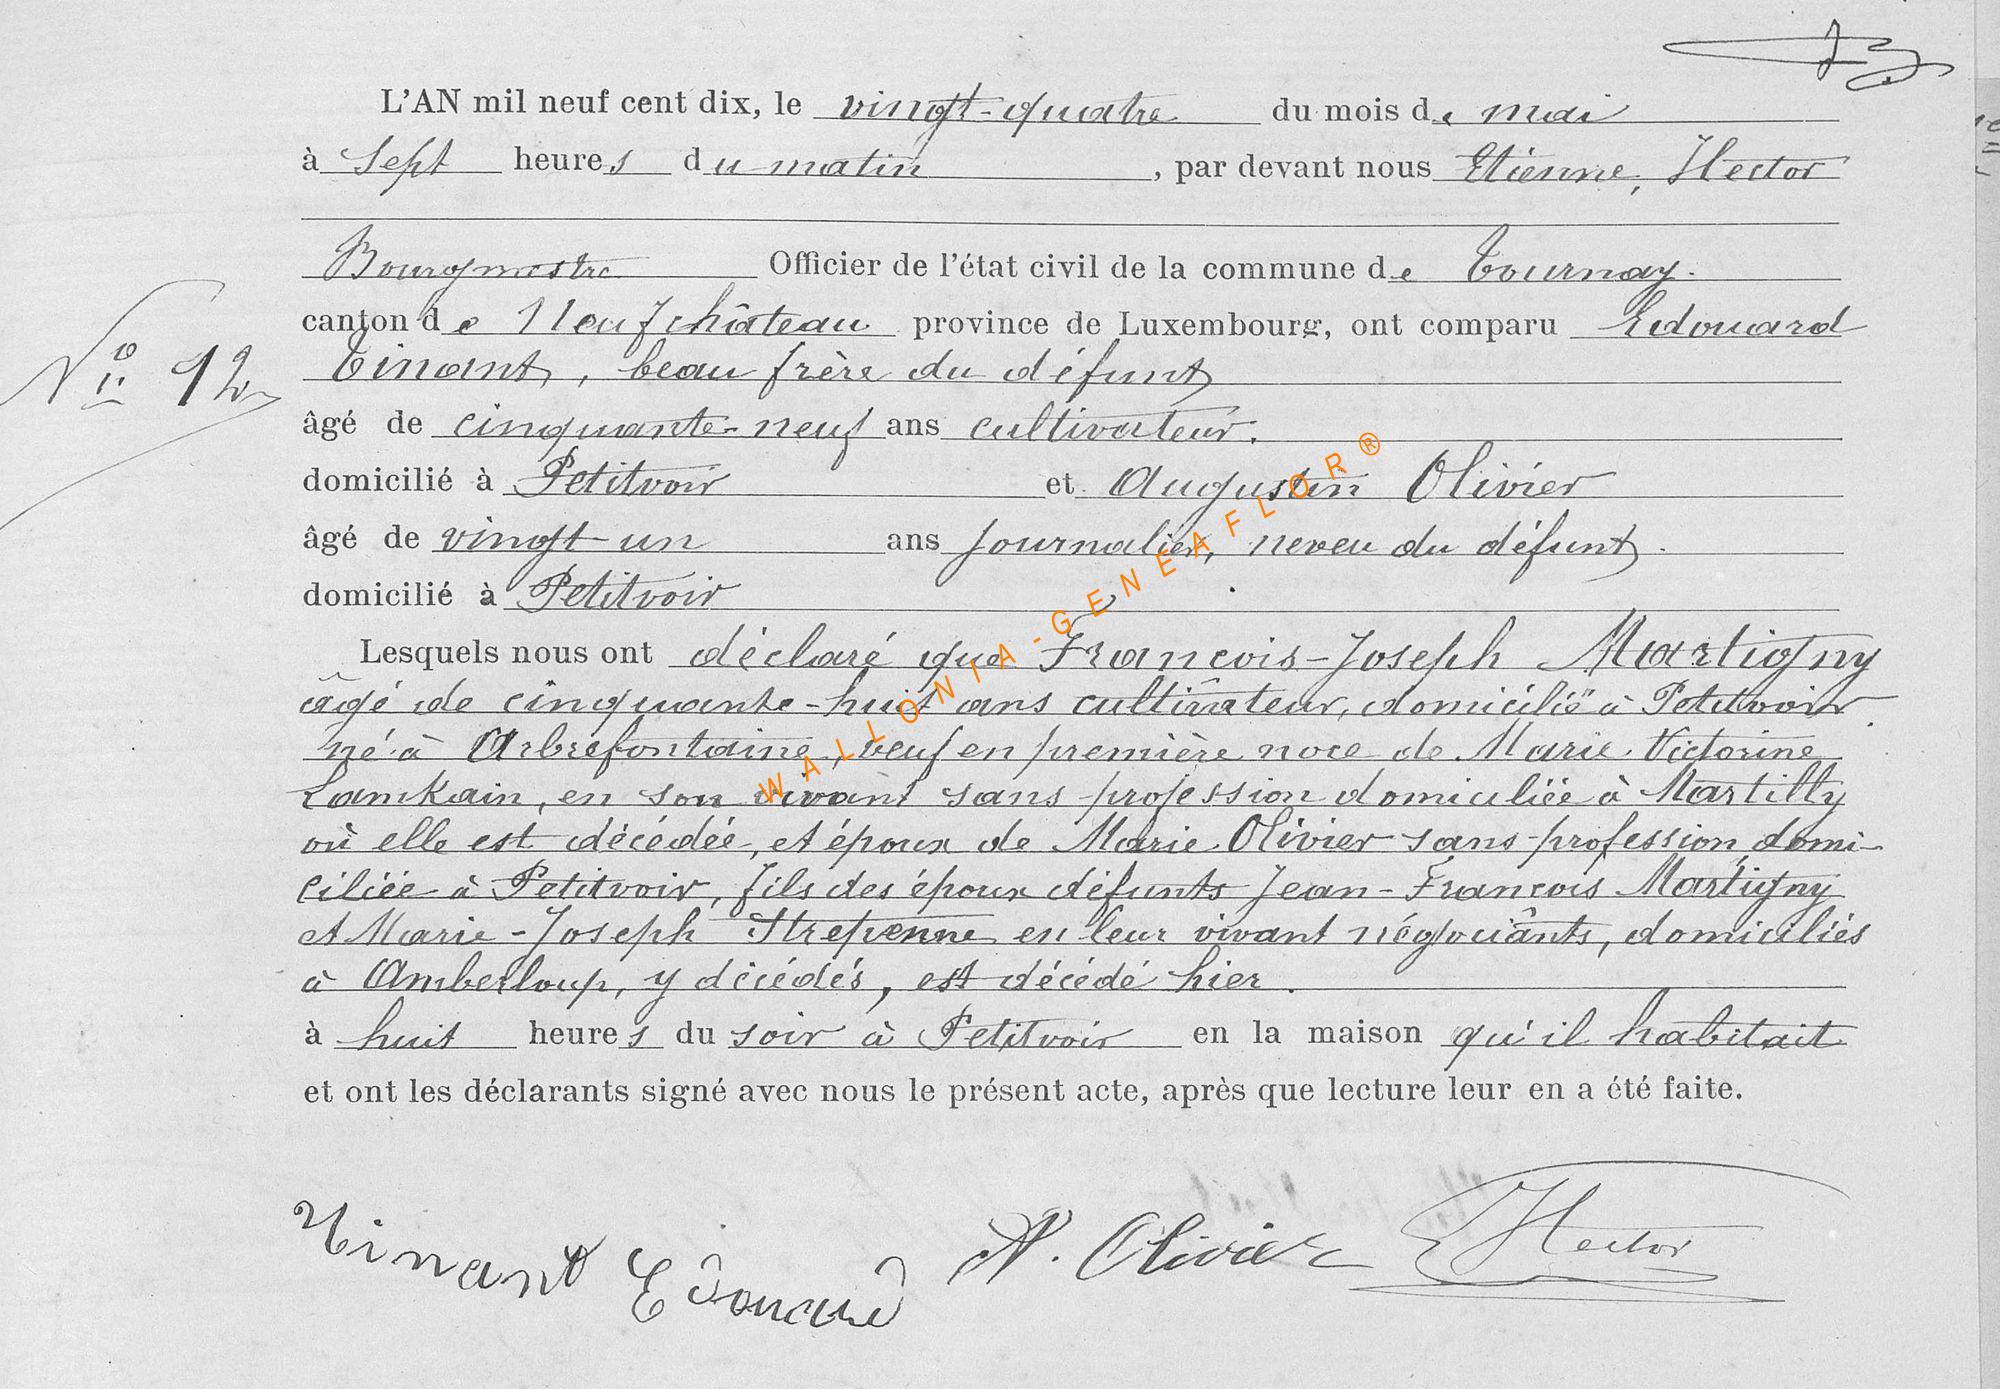 L'AN mil neuf cent dix, le vingt-quatre du mois de mai
à sept heures du matin, par devant nous Etienne, Hector
Bourgmestre Officier de l'état civil de la commune de Tournay.
canton de Neufchâteau province de Luxembourg, ont comparu Edouard
Tinant, beau frère du défunt
N° 12
âgé de cinquante-neuf ans cultivateur.
domicilié à Petitvoir et Augustin Olivier
âgé de vingt-un ans journalier, neveu du défunt.
domicilié à Petitvoir
Lesquels nous ont déclaré que François-Joseph Martigny
âgé de cinquante-huit ans cultivateur, domicilié à Petitvoir
né à Arbrefontaine, veuf en première noce de Marie Victorine
Lamkain, en son vivant sans profession domiciliée à Martilly
où elle est décédée, et époux de Marie Olivier sans profession domi-
ciliée à Petitvoir, fils des époux défunts Jean-François Martigny
et Marie-Joseph Strepenne en leur vivant négociants, domiciliés
à Amberloup, y décédés, est décédé hier.
à huit heures du soir à Petitvoir en la maison qu'il habitait
et ont les déclarants signé avec nous le présent acte, après que lecture leur en a été faite.
Tinant Edouard A. Olivier E Hector
WALLONIA-GENEAFLOR®